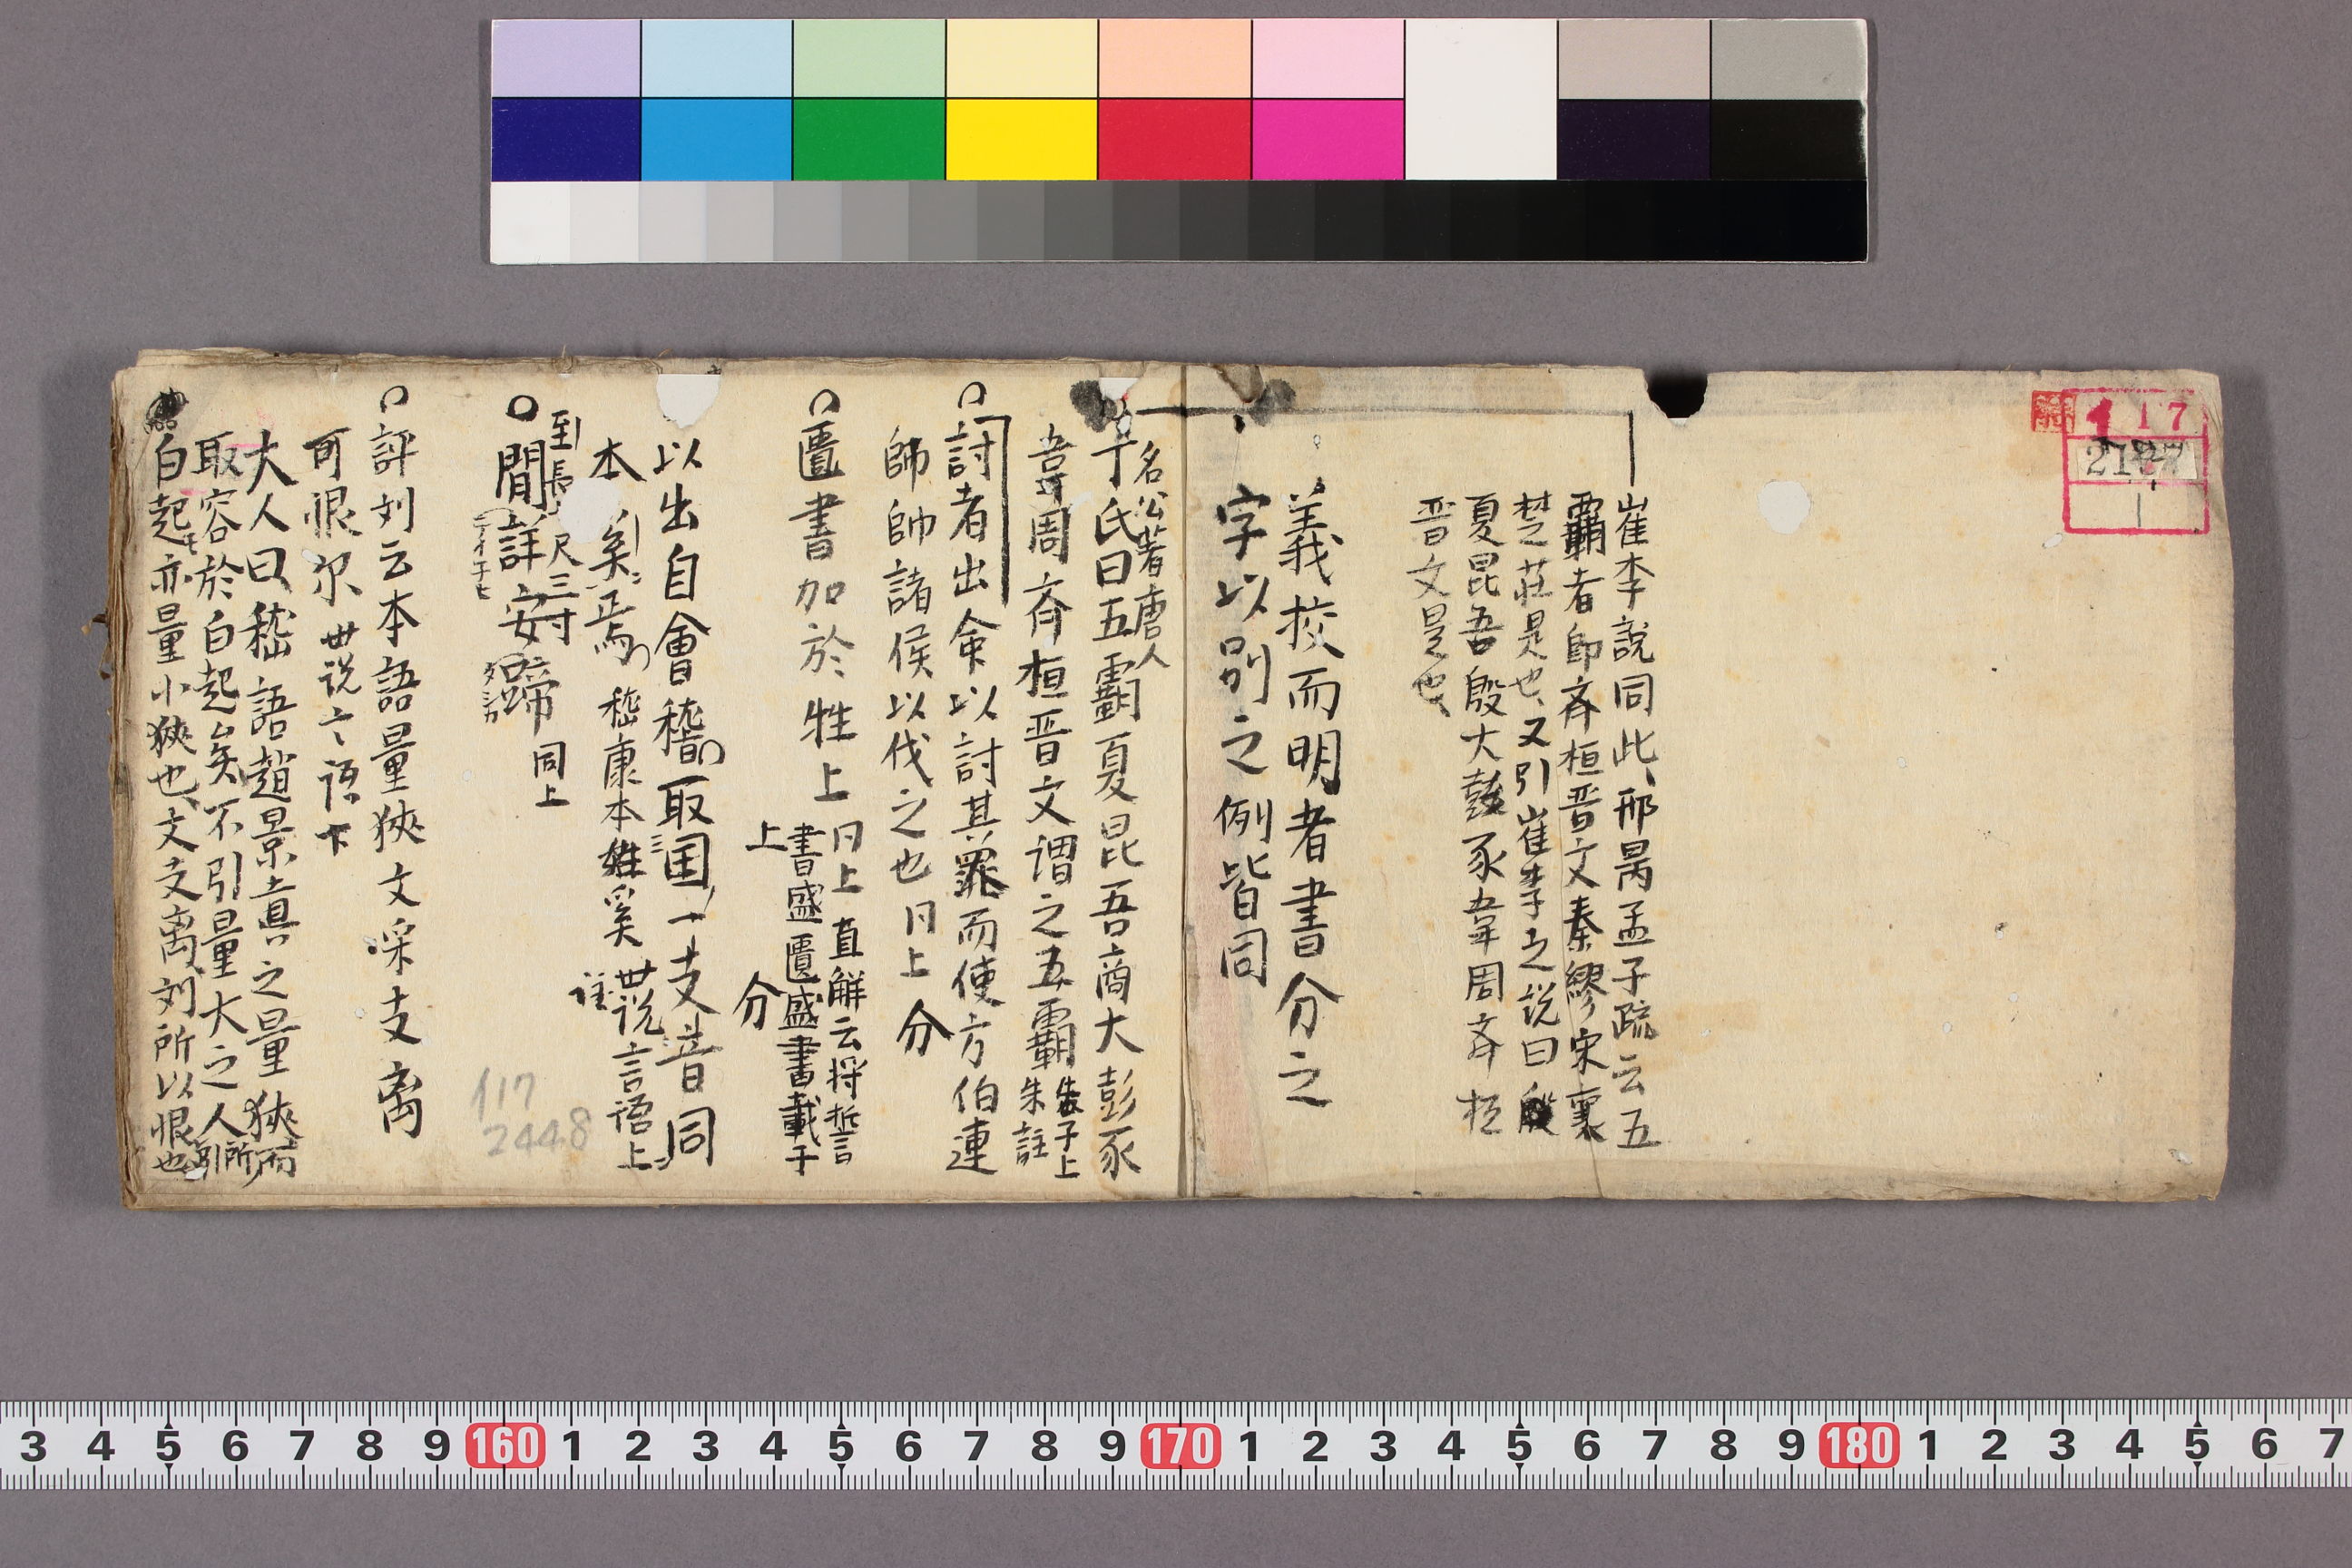 117
2127
1
崔李說同此、邢昺孟子疏云五
霸者即斉桓晋文秦繆宋襄
楚莊是也、又引崔李之说曰
夏昆吾殷大彭豕韋周斉桓
晋文是也、
義挍而明者書分之
字以别之例皆同
名公著唐人
丁氏曰五霸夏昆吾商大彭豕
韋周斉桓晋文謂之五霸 朱子上
朱註
討者出命以討其罪而使方伯連
帥帥諸侯以伐之也 同上 分
匱書加於牲上 同上 直解云将誓
書盛匱盛書載于
上 分
以出自會稽取国一支音同
本奚焉 嵇康本姓奚 世说言语上
註
到長 尺三寸
間詳安蹄 同上
評刘云本語量狹文采支离
可恨尔 世说言语下
大人曰嵇語趙景真之量狹而
取容於白起矣不引量大之人所
白起亦量小狹也、文支离刘所以恨也
117
2448
3 4 5 6 7 8 9 160 1 2 3 4 5 6 7 8 9 170 1 2 3 4 5 6 7 8 9 180 1 2 3 4 5 6 7